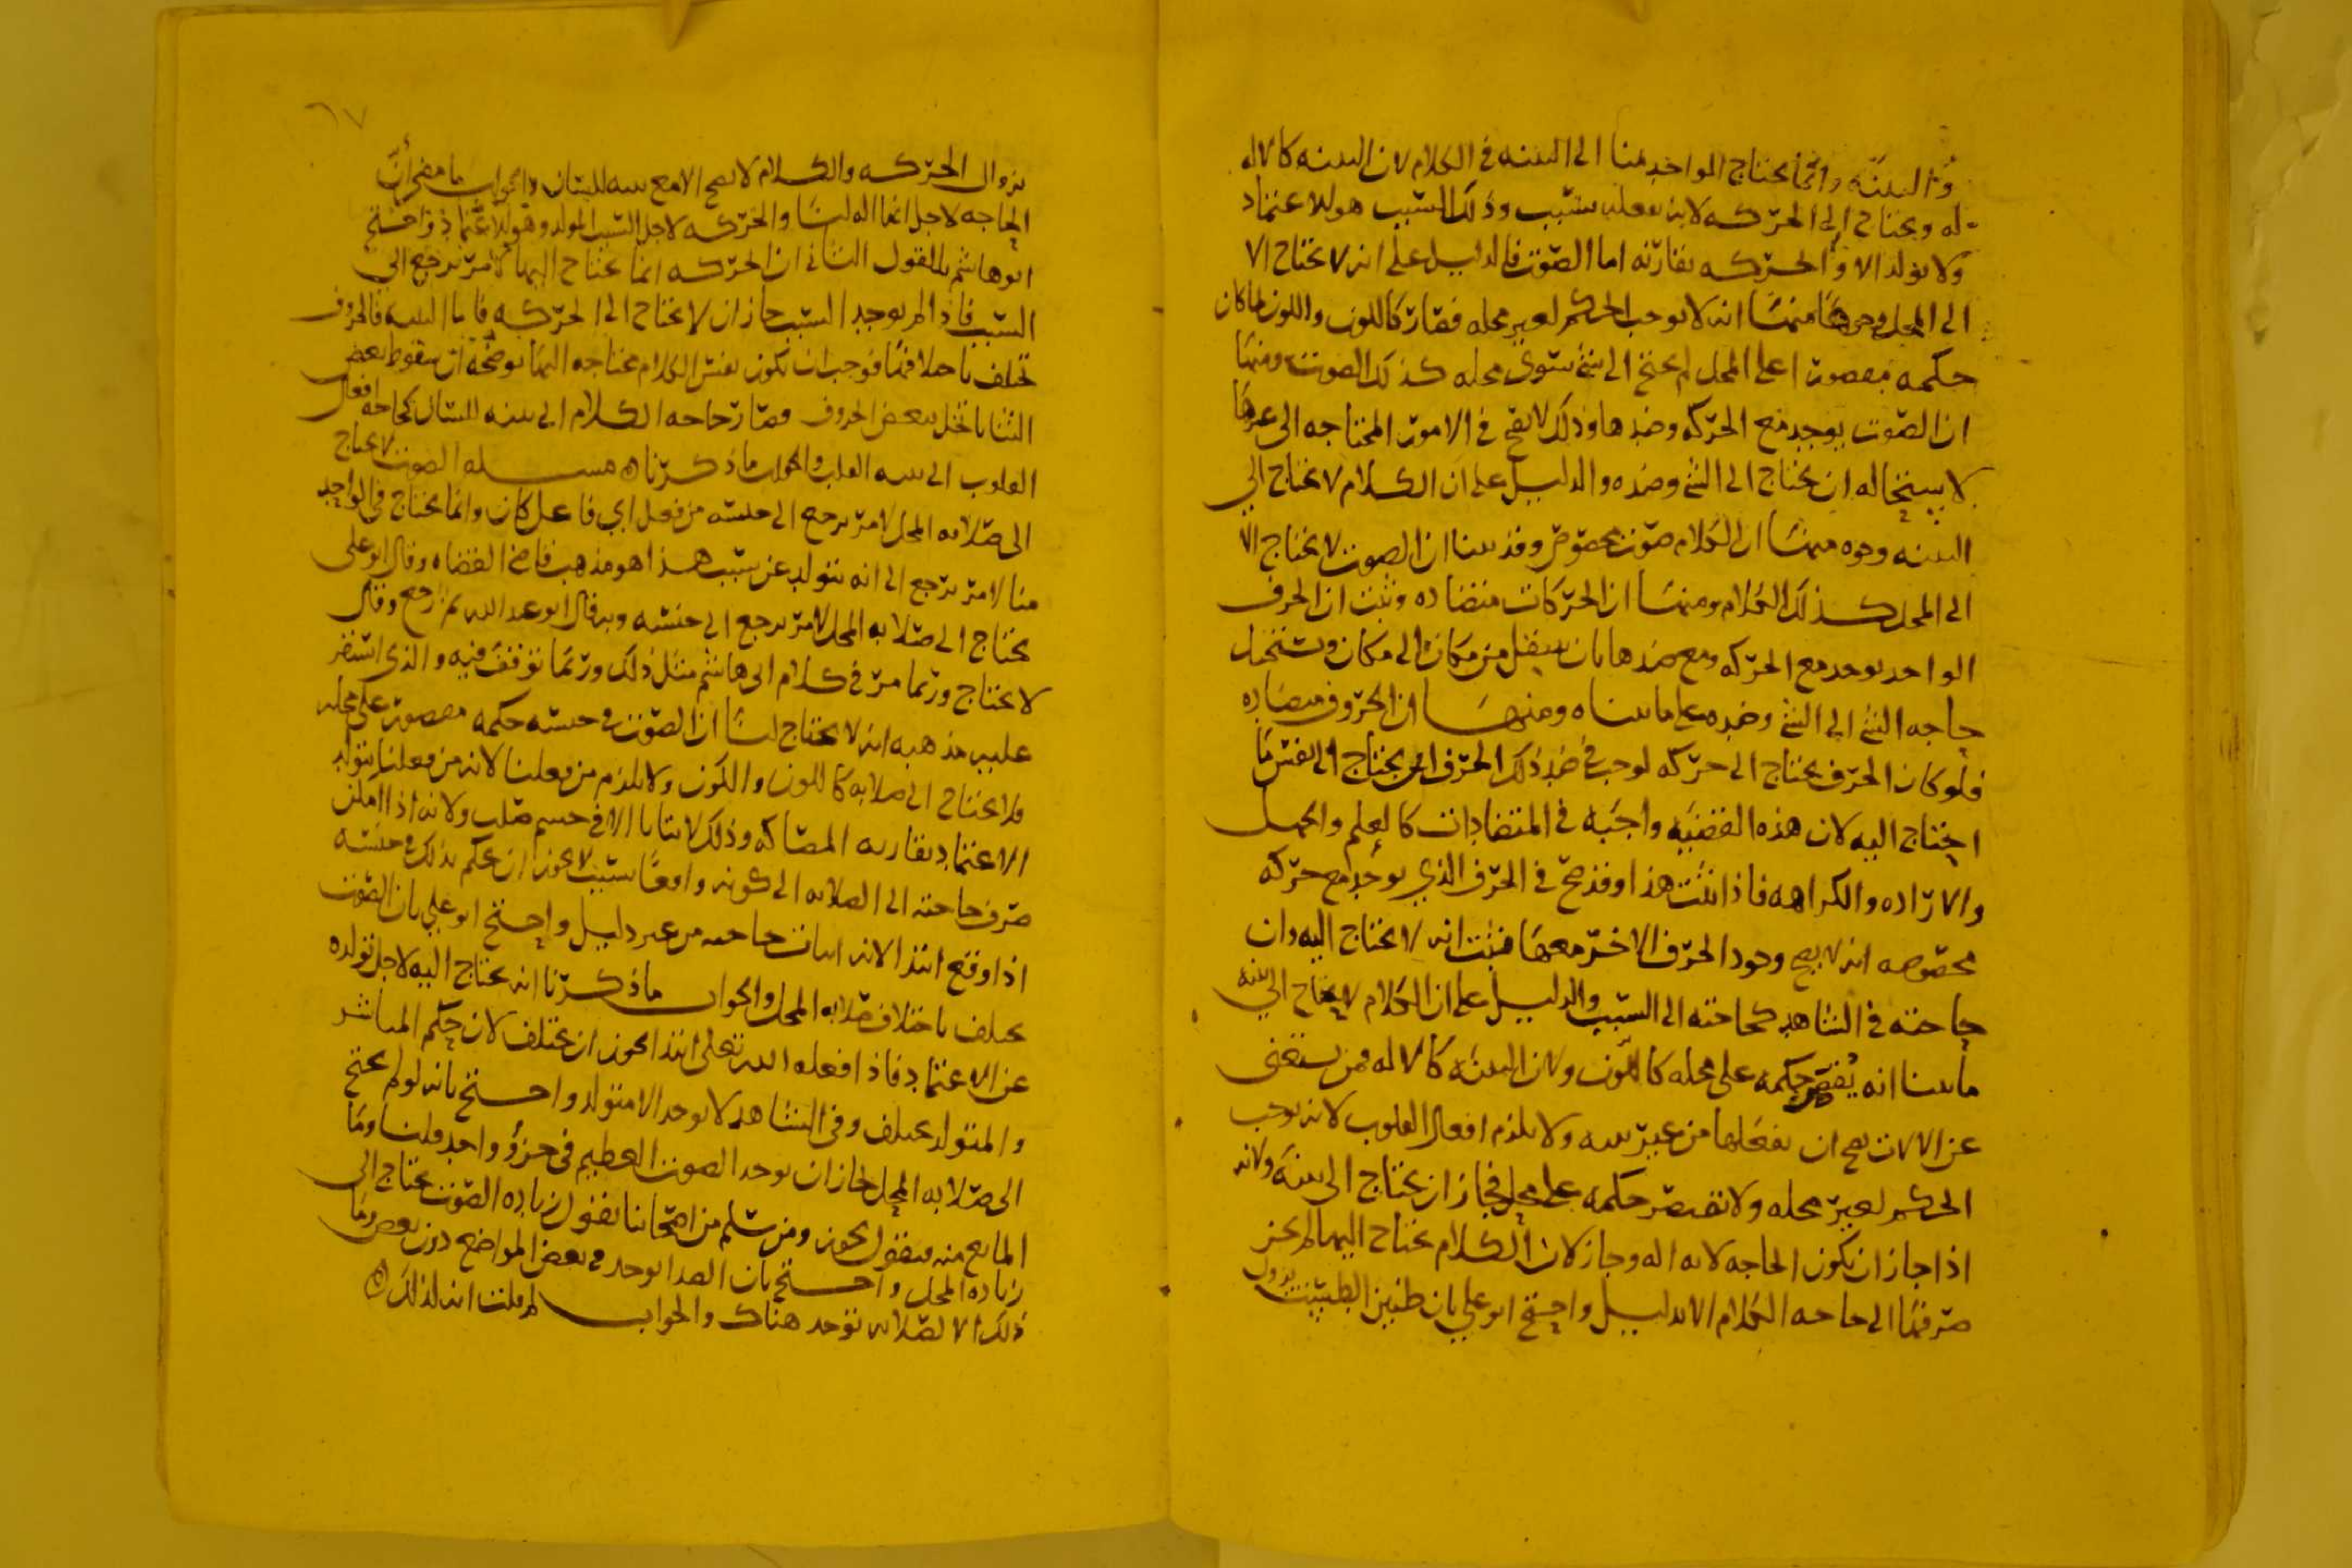 والبنيه وانما يحتاج الواحد منا الى البنيه في الكلام لان البنيه كالاله
له ويحتاج الى الحركه لانه يفعله بسبب وذلك السبب هو الاعتماد
ولا يولد الا والحركه تقارنه اما الصوت فالدليل على انه لا يحتاج الا
الى المحل وجوه منها انه لا يوجب الحكم لغير محله فصار كاللون واللون لما كان
حكمه مقصورا على المحل لم يحتج الى شي سوى محله كذلك الصوت ومنها
ان الصوت يوجد مع الحركه وضدها وذلك لا يصح في الامور المحتاجه الى غيرها
لاستحاله ان يحتاج الى الشي وضده والدليل على ان الكلام لا يحتاج الى
البنيه وجوه منها ان الكلام صوت مخصوص وقد بينا ان الصوت لا يحتاج الا
الى المحل كذلك الكلام ومنها ان الحركات متضاده وثبت ان الحرف
الواحد يوجد مع الحركه ومع ضدها بان ينتقل من مكان الى مكان وتستحيل
حاجه الشي الى الشي وضده على ما بيناه ومنها ان الحروف متضاده
فلو كان الحرف يحتاج الى حركه لوجب في ضد ذلك الحرف ان يحتاج الى نفس ما
احتاج اليه لان هذه القضيه واجبه في المتضادات كالعلم والجهل
والاراده والكراهه فاذا ثبت هذا وقد صح في الحرف الذي يوجد مع حركه
مخصوصه انه لا يصح وجود الحرف الاخر معها فثبت انه لا يحتاج اليه وان
حاجته في الشاهد كحاجته الى السبب والدليل على ان الكلام لا يحتاج الى البنيه
ما بينا انه يقصر حكمه على محله كاللون ولان البنيه كالاله فمن يستغنى
عن الالات يصح ان يفعلها من غير بنيه ولا يلزم افعال القلوب لانه يوجب
الحكم لغير محله ولا تقتصر حكمه على محله فجاز ان يحتاج الى بنيه ولانه
اذا جاز ان تكون الحاجه لانه اله وجاز لان الكلام يحتاج اليها لم يجز
صرفها الى حاجه الكلام الا بدليل واحتج ابو علي بان طنين الطست يزول
بزوال الحركه والكلام لا يصح الا مع بنيه اللسان والجواب ما مضى أن
الحاجه لاجل انها اله لنا والحركه لاجل السبب المولد وهو الاعتماد واحتج
ابو هاشم للقول الثاني ان الحركه انما يحتاج اليها لامر يرجع الى
السبب فاذا لم يوجد السبب جاز ان لا يحتاج الى الحركه فاما البنيه فالحروف
تختلف باختلافها فوجب ان تكون نفس الكلام محتاجه اليها يوضحه ان سقوط بعض
الثنايا تخل ببعض الحروف فصار حاجه الكلام الى بنيه اللسان كحاجه افعال
القلوب الى بنيه القلب والجواب ما ذكرناه مسله الصوت لا يحتاج
الى صلابه المحل لامر يرجع الى جنسه من فعل اي فاعل كان وانما يحتاج في الواحد
منا لامر يرجع الى انه يتولد عن سبب هذا هو مذهب قاضي القضاه وقال ابو علي
يحتاج الى صلابه المحل لامر يرجع الى جنسه وبه قال ابو عبد الله ثم رجع وقال
لا يحتاج وربما مر في كلام ابي هاشم مثل ذلك وربما توقف فيه والذي استقر
عليه مذهبه انه لا يحتاج لنا ان الصوت في جنسه حكمه مقصور على محله
فلا يحتاج الى صلابه كاللون والكون ولا يلزم من فعلنا لانه من فعلنا يتولد
الاعتماد يقارنه المصاكه وذلك لا يتاتا الا في جسم صلب ولانه اذا امكن
صرف حاجته الى الصلابه الى كونه واقعا بسبب لا يجوز ان يحكم بذلك في جنسه
اذا وقع ابتدا لانه اثبات حاجه من غير دليل واحتج ابو علي بان الصوت
يختلف باختلاف صلابه المحل والجواب ما ذكرنا انه يحتاج اليه لاجل تولده
عن الاعتماد فاذا فعله الله تعالى ابتدا يجوز ان يختلف لان حكم المباشر
والمتولد يختلف وفي الشاهد لا يوجد الا متولد واحتج بانه لو لم يحتج
الى صلابه المحل لجاز ان يوجد الصوت العظيم في جزؤ واحد قلنا وما
المانع منه فنقول يجوز ومن سلم من اصحابنا يقول زياده الصوت يحتاج الى
زياده المحل واحتج بان الصدا يوجد في بعض المواضع دون بعض وما
ذلك الا لصلابه توجد هناك والجواب لم قلت انه لذلك